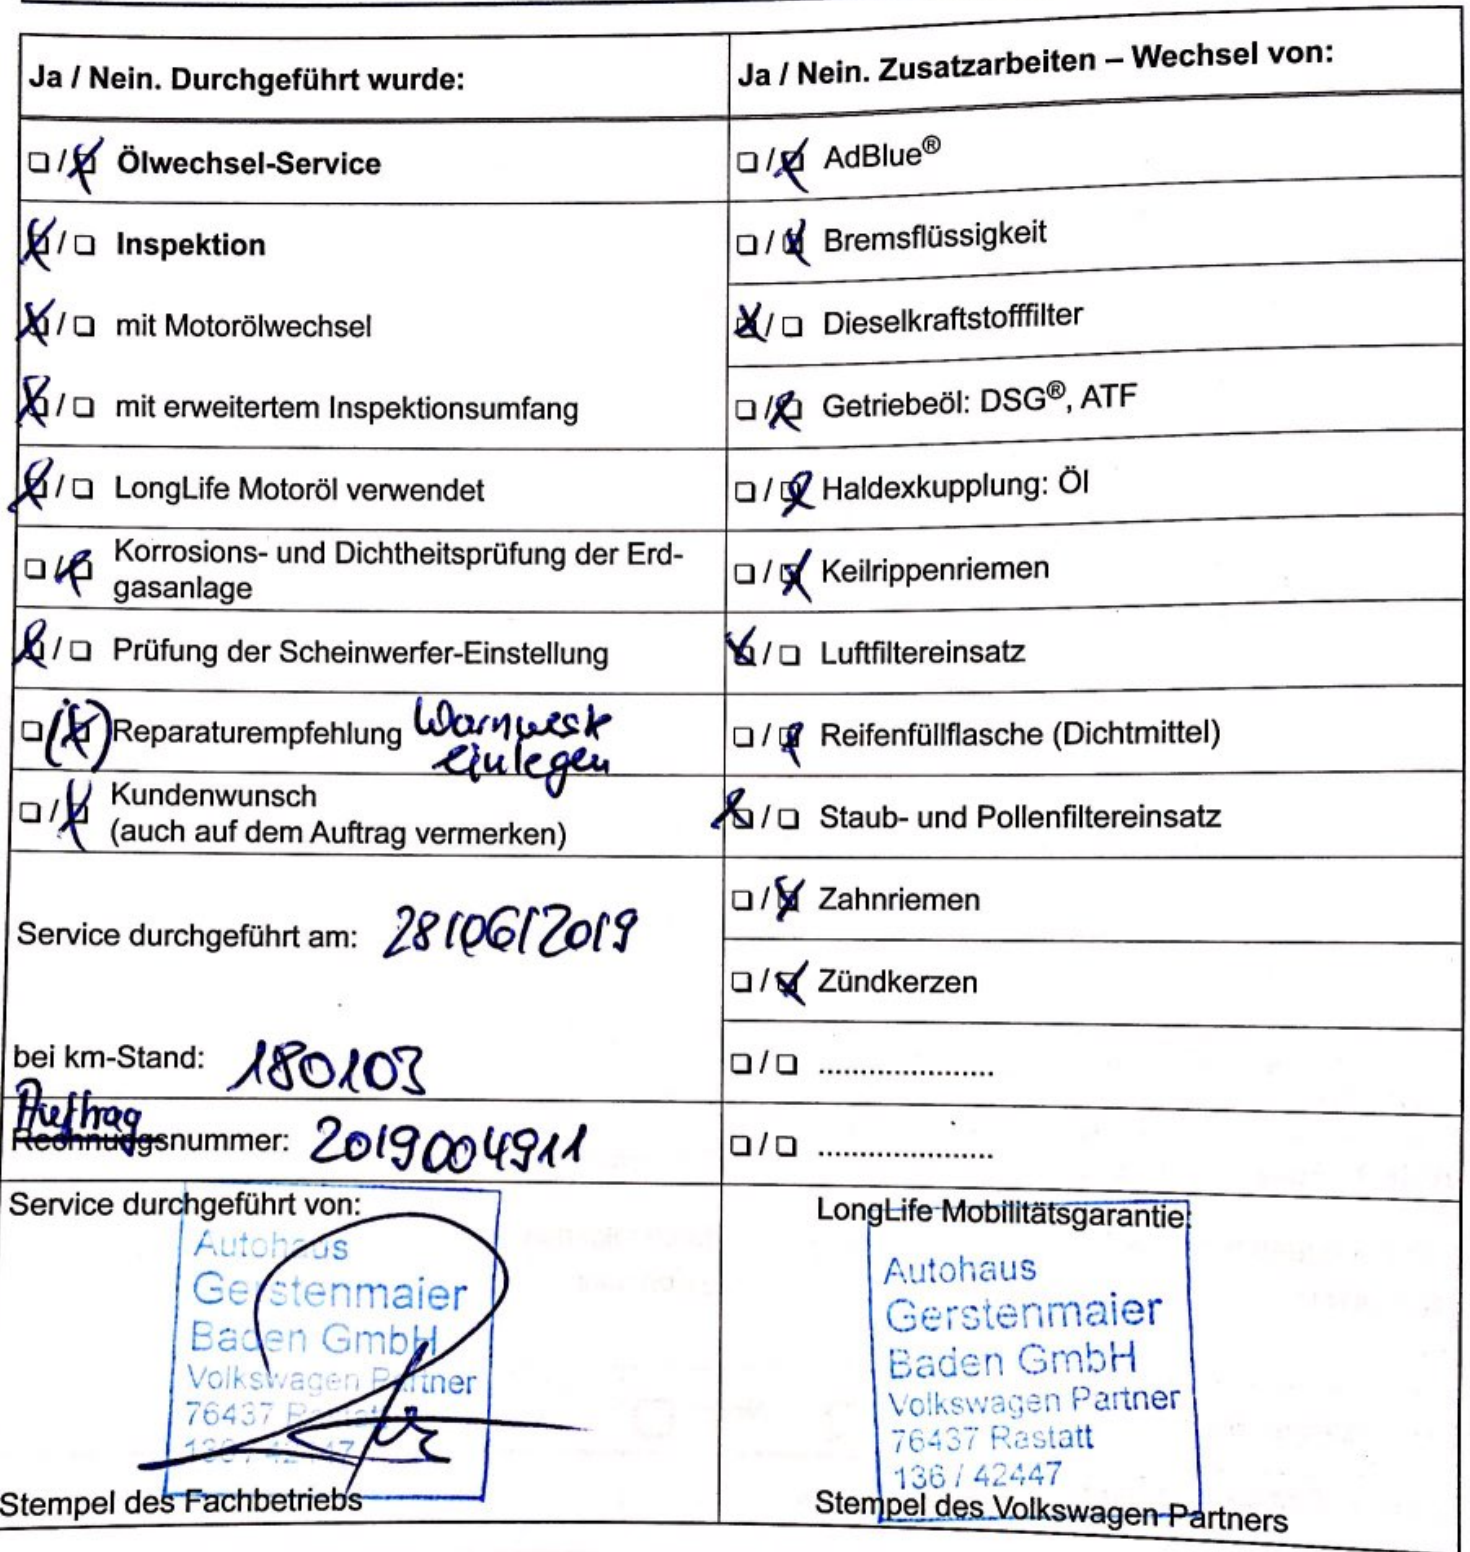 Ja / Nein. Durchgeführt wurde:
☐/☒ Ölwechsel-Service
☒/☐ Inspektion
☒/☐ mit Motorölwechsel
☒/☐ mit erweitertem Inspektionsumfang
☒/☐ LongLife Motoröl verwendet
☐/☒ Korrosions- und Dichtheitsprüfung der Erd-
gasanlage
☒/☐ Prüfung der Scheinwerfer-Einstellung
☐/(☒) Reparaturempfehlung Warnwest
einlegen
☐/☒ Kundenwunsch
(auch auf dem Auftrag vermerken)
Service durchgeführt am: 28/06/2019
bei km-Stand: 180103
Auftrag
Rechnungsnummer: 2019004911
Service durchgeführt von:
Autohaus
Gerstenmaier
Baden GmbH
Volkswagen Partner
76437 Rastatt
136 / 42447
Stempel des Fachbetriebs
Ja / Nein. Zusatzarbeiten – Wechsel von:
☐/☒ AdBlue®
☐/☒ Bremsflüssigkeit
☒/☐ Dieselkraftstofffilter
☐/☒ Getriebeöl: DSG®, ATF
☐/☒ Haldexkupplung: Öl
☐/☒ Keilrippenriemen
☒/☐ Luftfiltereinsatz
☐/☒ Reifenfüllflasche (Dichtmittel)
☒/☐ Staub- und Pollenfiltereinsatz
☐/☒ Zahnriemen
☐/☒ Zündkerzen
☐/☐ .....................
☐/☐ .....................
LongLife Mobilitätsgarantie:
Autohaus
Gerstenmaier
Baden GmbH
Volkswagen Partner
76437 Rastatt
136 / 42447
Stempel des Volkswagen Partners